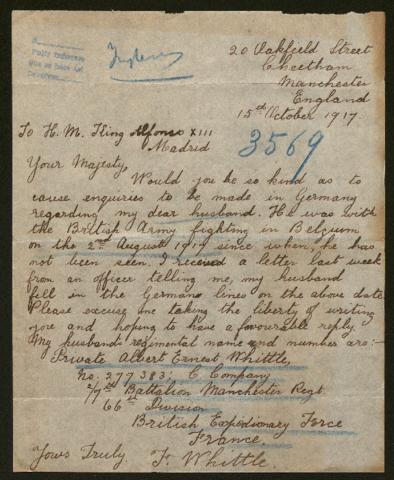 Inglaterra
20 Oakfield Street
Cheetham
Manchester
England
15th October 1917
3569
To H. M. King Alfonso XIII
Madrid
Your Majesty,
Would you be so kind as to
cause enquiries to be made in Germany
regarding my dear husband. He was with
the British Army fighting in Belgium
on the 2nd August 1917 since when he has
not been seen. I received a letter last week
from an officer telling me, my husband
fell in the Germans lines on the above date
Please excuse me taking the liberty of writing
you and hoping to have a favourable reply.
My husbands regimental name and number are:-
Private Albert Ernest Whittle,
No. 277383; C Company
2/7th Battalion Manchester Regt.
66th Division
British Expedionary Force
France.
Yours Truly F. Whittle.